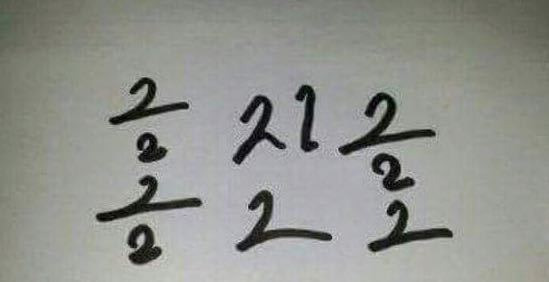 2/2 21 2/2
2/2 2 2